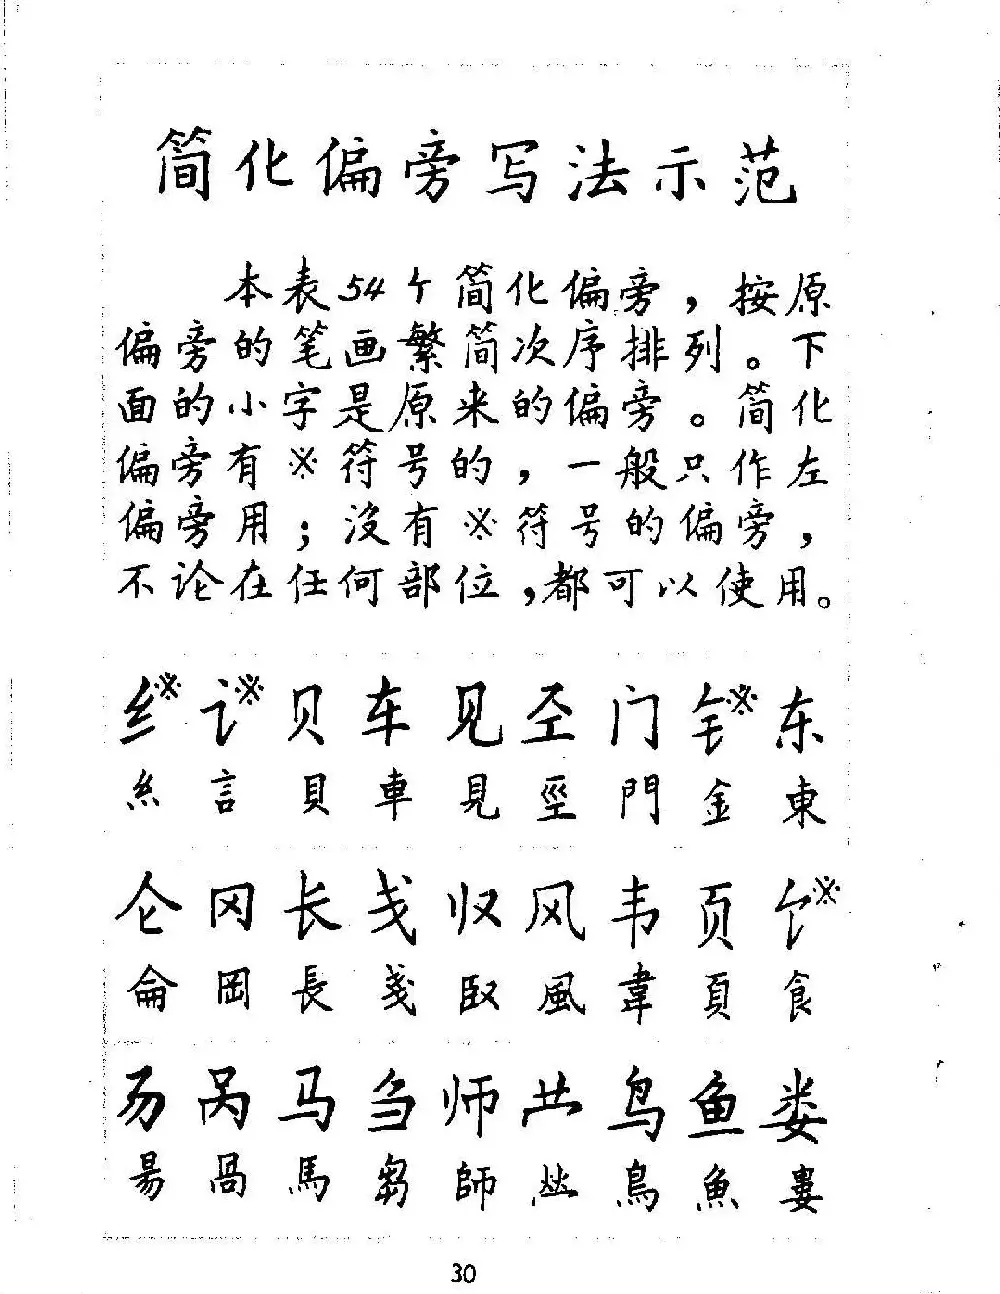 简化偏旁写法示范
本表54个简化偏旁，按原
偏旁的笔画繁简次序排列。下
面的小字是原来的偏旁。简化
偏旁有※符号的，一般只作左
偏旁用；没有※符号的偏旁，
不论在任何部位，都可以使用。
纟※ 讠※ 贝 车 见 圣 门 钅※ 东
糹 言 貝 車 見 巠 門 金 東
仑 冈 长 戋 归 风 韦 页 饣※
侖 岡 長 戔 臤 風 韋 頁 飠
𠃓 呙 马 刍 师 鸟 鱼 娄
昜 咼 馬 芻 師 鳥 魚 婁
30